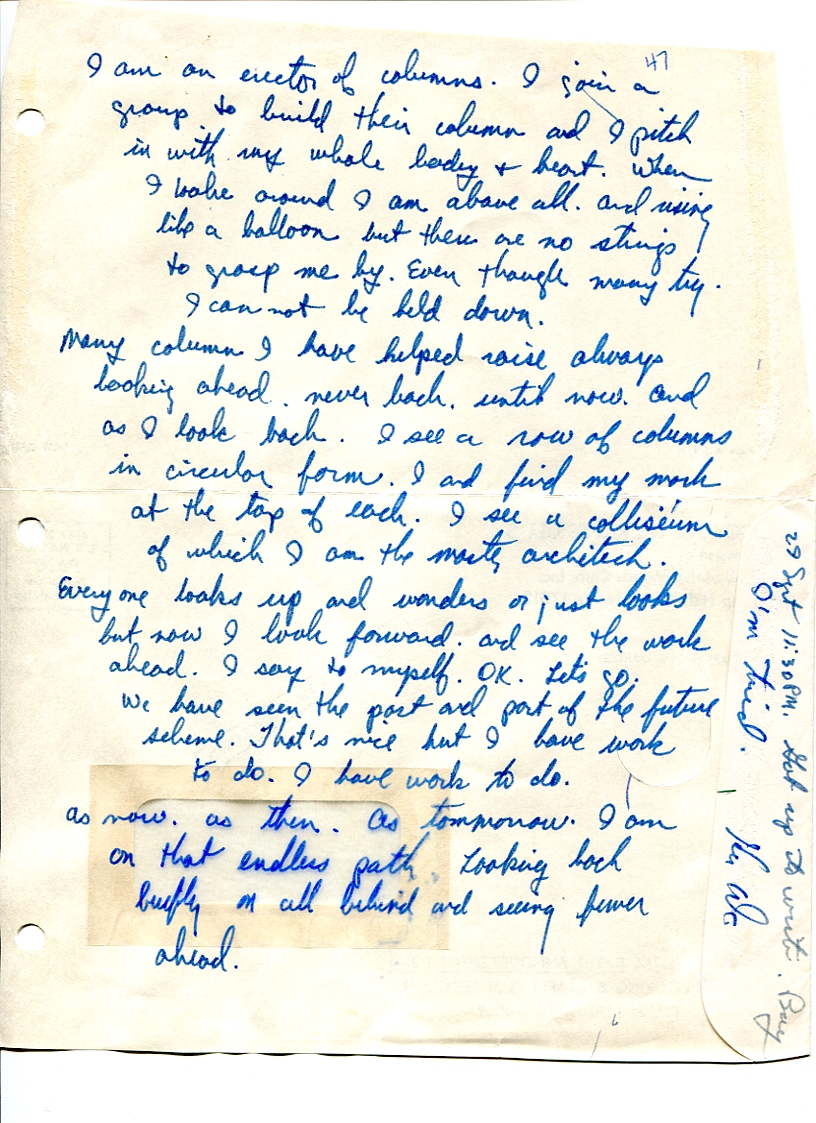 47
I am an erector of columns. I join a
group to build their column and I pitch
in with my whole body + heart. When
I look around I am above all. and rising
like a balloon but there are no strings
to grasp me by. Even though many try.
I can not be held down.
Many column I have helped raise always
looking ahead. never back. until now. and
as I look back. I see a row of columns
in circular form. I and find my mark
at the top of each. I see a colliseium
of which I am the master architech.
Everyone looks up and wonders or just looks
but now I look forward. and see the work
ahead. I say to myself. OK. Let's go.
We have seen the past and part of the future
scheme. That's nice but I have work
to do. I have work to do.
as now. as then. as tommorrow. I am
on that endless path. Looking back
briefly on all behind and seeing fewer
ahead.
29 Sept 11:30PM. Got up to write.
I'm tired.